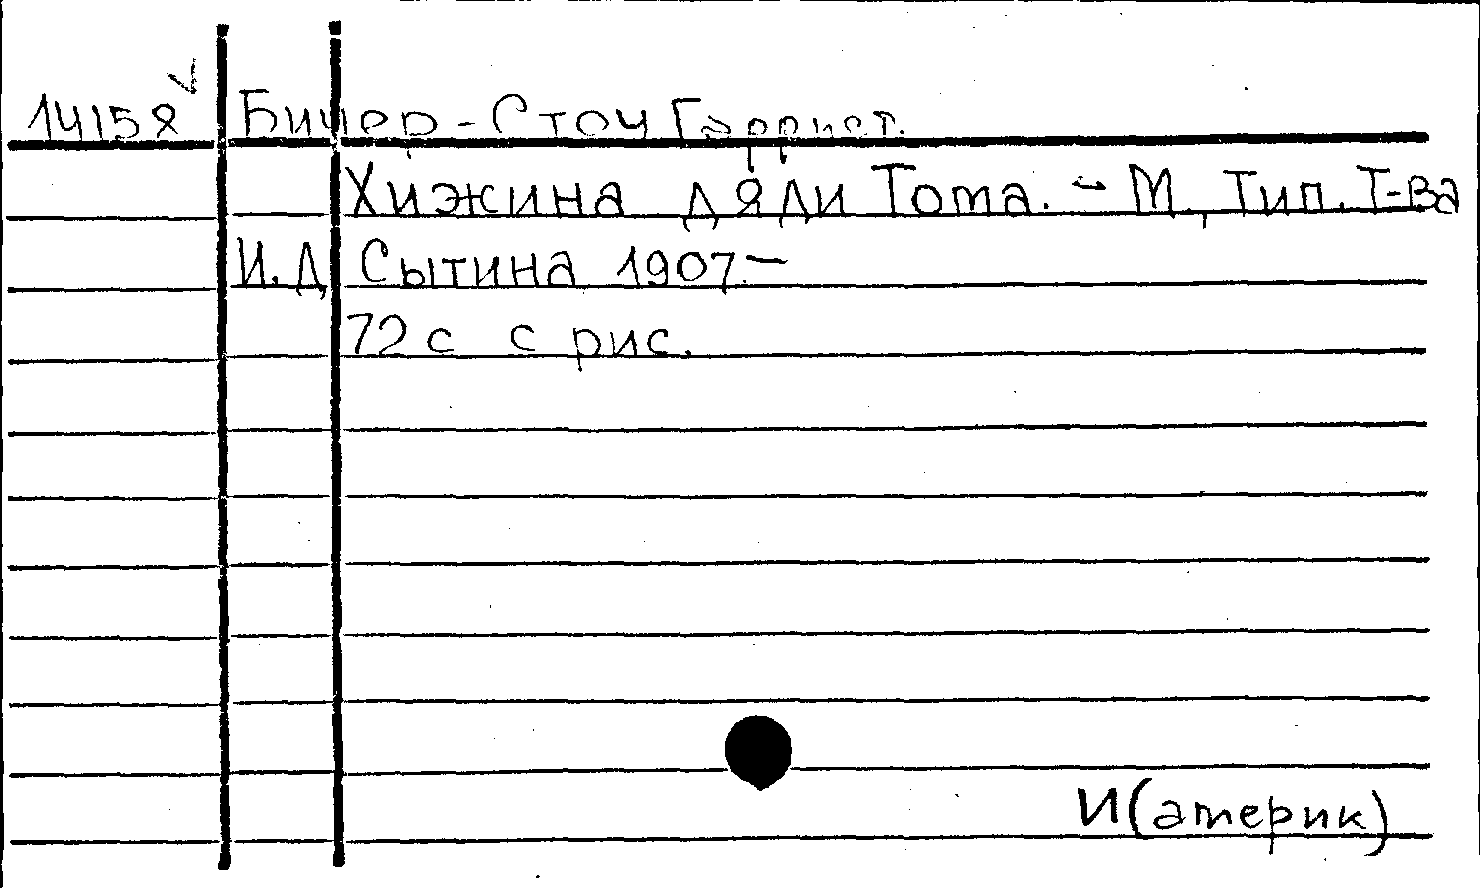 14158 Бичер-Стоу Гаррист.
Хижина дяди Тома. - М, Тип. Т-ва
И.Д Сытина 1907.-
72 с с рис.
И(америк)